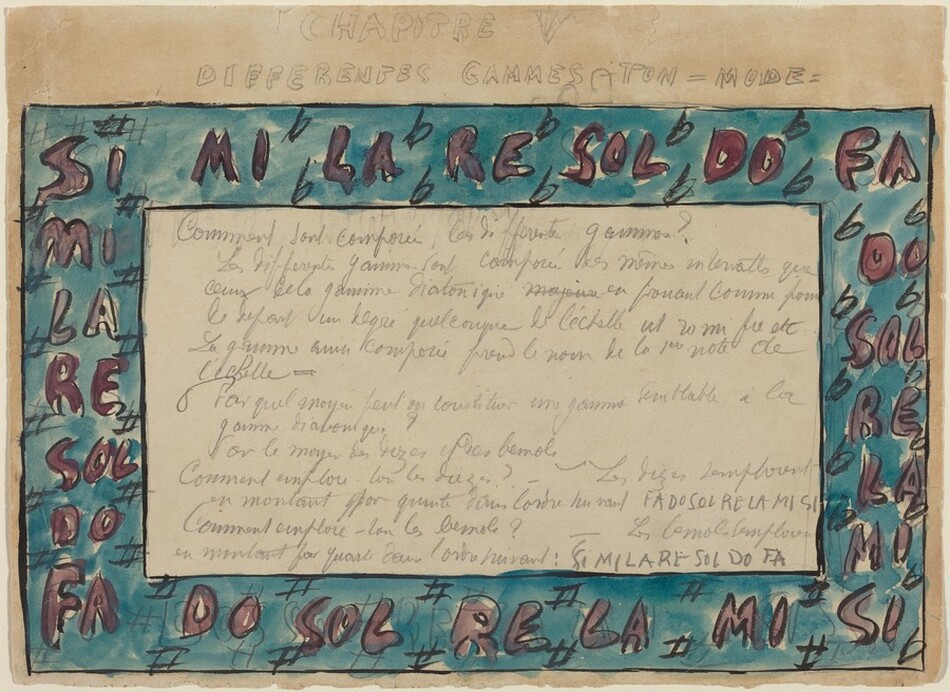 CHAPITRE V
DIFFERENTES GAMMES = TON = MODE =
SI # MI b LA b RE b SOL b DO b FA
MI
LA
RE
SOL
DO
FA
b DO b
SOL
RE
LA
MI
Comment sont composée les differente gammes?
Les differente gamme sont composée des mêmes intervalles que
ceux de la gamme diatonique majeure en prenant comme point
de depart un degré quelconque de l'échelle ut re mi fa etc
La gamme ainsi composée prend le nom de la 1ere note de
l'échelle =
Par quel moyen peut on constituer une gamme semblable à la
gamme diatonique?
Par le moyen des diezes et des bemols
Comment emploie-ton les diezes? — Les diezes s'emploient
en montant par quinte dans l'ordre suivant FA DO SOL RE LA MI SI
Comment emploie-ton les bemols? — Les bemols s'emploient
en montant par quarte dans l'ordre suivant: SI MI LA RE SOL DO FA
# DO # SOL # RE # LA # MI # SI b